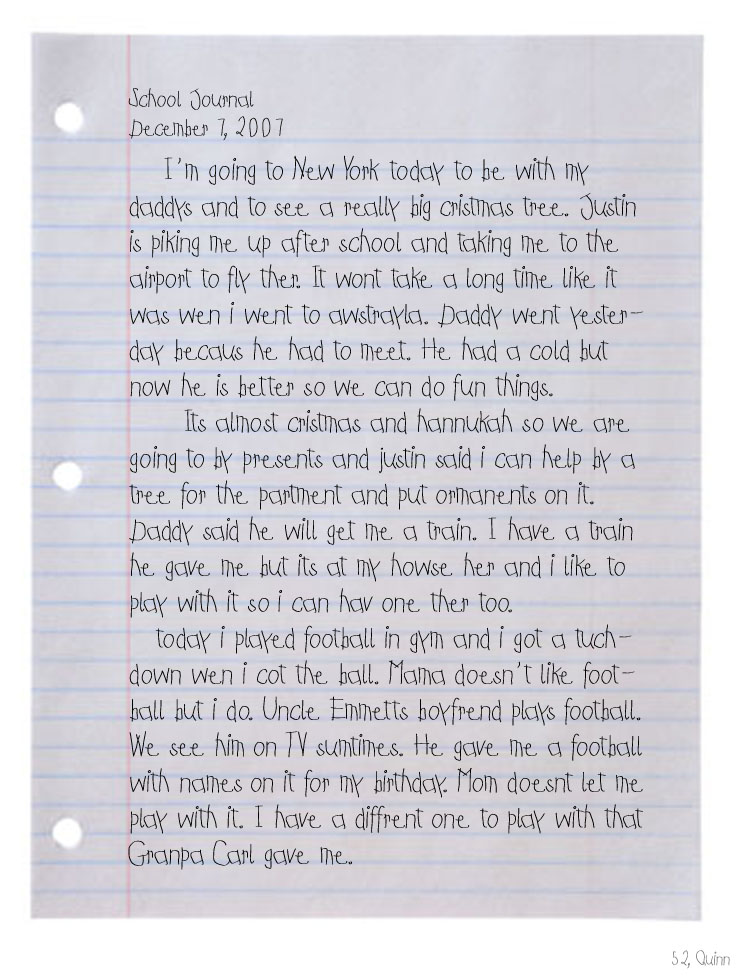 School Journal
December 7, 2007
I'm going to New York today to be with my
daddys and to see a really big cristmas tree. Justin
is piking me up after school and taking me to the
airport to fly ther. It wont take a long time like it
was wen i went to awstrayla. Daddy went yester-
day becaus he had to meet. He had a cold but
now he is better so we can do fun things.
Its almost cristmas and hannukah so we are
going to by presents and justin said i can help by a
tree for the partment and put ormanents on it.
Daddy said he will get me a train. I have a train
he gave me but its at my howse her and i like to
play with it so i can hav one ther too.
today i played football in gym and i got a tuch-
down wen i cot the ball. Mama doesn't like foot-
ball but i do. Uncle Emmetts boyfrend plays football.
We see him on TV sumtimes. He gave me a football
with names on it for my birthday. Mom doesnt let me
play with it. I have a diffrent one to play with that
Granpa Carl gave me.
52, Quinn